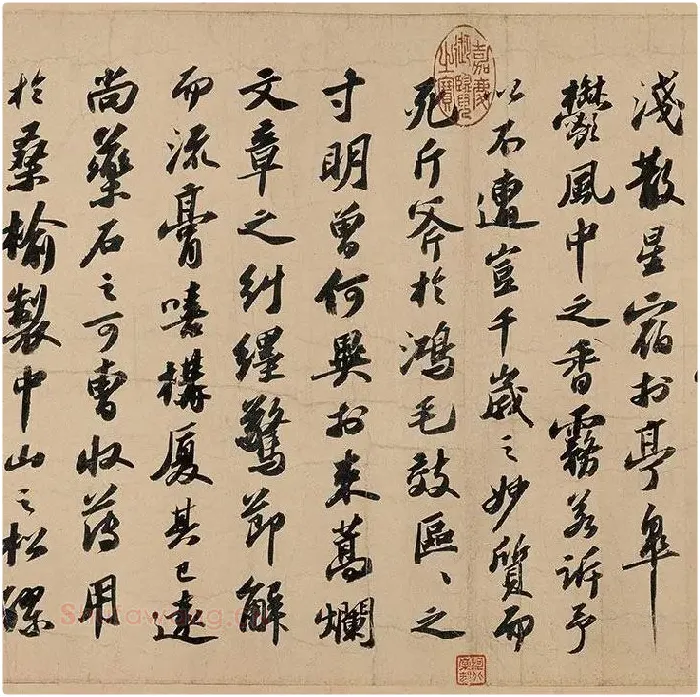 淺散星宿於亭皋
鬱風中之香霧若訴予
以不遭豈千歲之妙質而
死斤斧於鴻毛效區〻之
寸明曾何異於束蒿爛
文章之糾纆驚節解
而流膏嘻構厦其已遠
尚藥石之可曹收薄用
於桑榆製中山之松醪
嘉慶御覽之寶